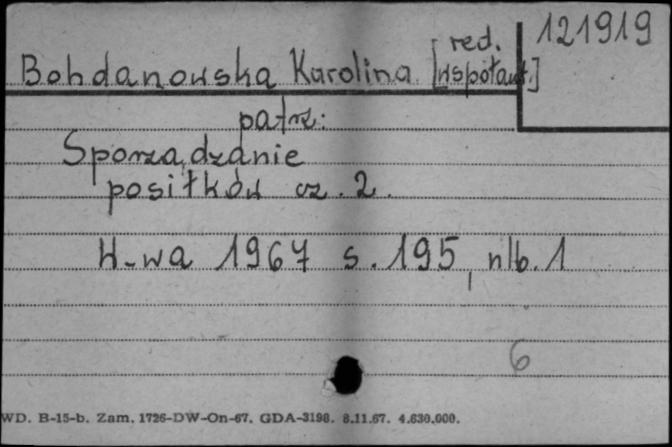 121919
red.
Bohdanowska Karolina [współaut.]
patrz:
Sporządzanie
posiłków cz. 2.
W-wa 1967 s. 195, nlb. 1
6
WD. B-15-b. Zam. 1726-DW-On-67. GDA-3198. 8.11.67. 4.630.000.